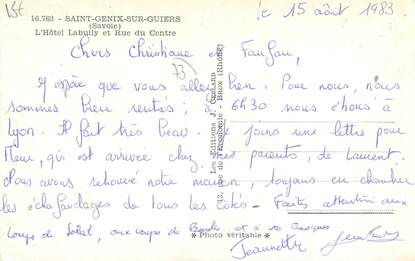 16.763 - SAINT-GENIX-SUR-GUIERS
(Savoie)
L'Hôtel Labully et Rue du Centre
le 15 août 1983
Chers Christiane et Fanfan,
J'espère que vous allez bien. Pour nous, nous
sommes bien rentrés ; à 6h30 nous étions à
Lyon. Il fait très beau. Je joins une lettre pour
Fleur, qui est arrivée chez mes parents, de Laurent.
Nous avons retrouvé notre maison, toujours en chantier
les échafaudages de tous les côtés - Faites attention aux
coups de Soleil, aux coupes de et à vos casques
Jeannette
* Photo véritable *
Les Editions J. CELLARD
BRON (Rhône)